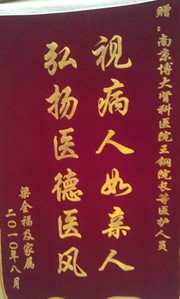 赠：南京博大肾科医院王钢院长等医护人员
视病人如亲人
弘扬医德医风
梁金福及家属
二〇一〇年八月